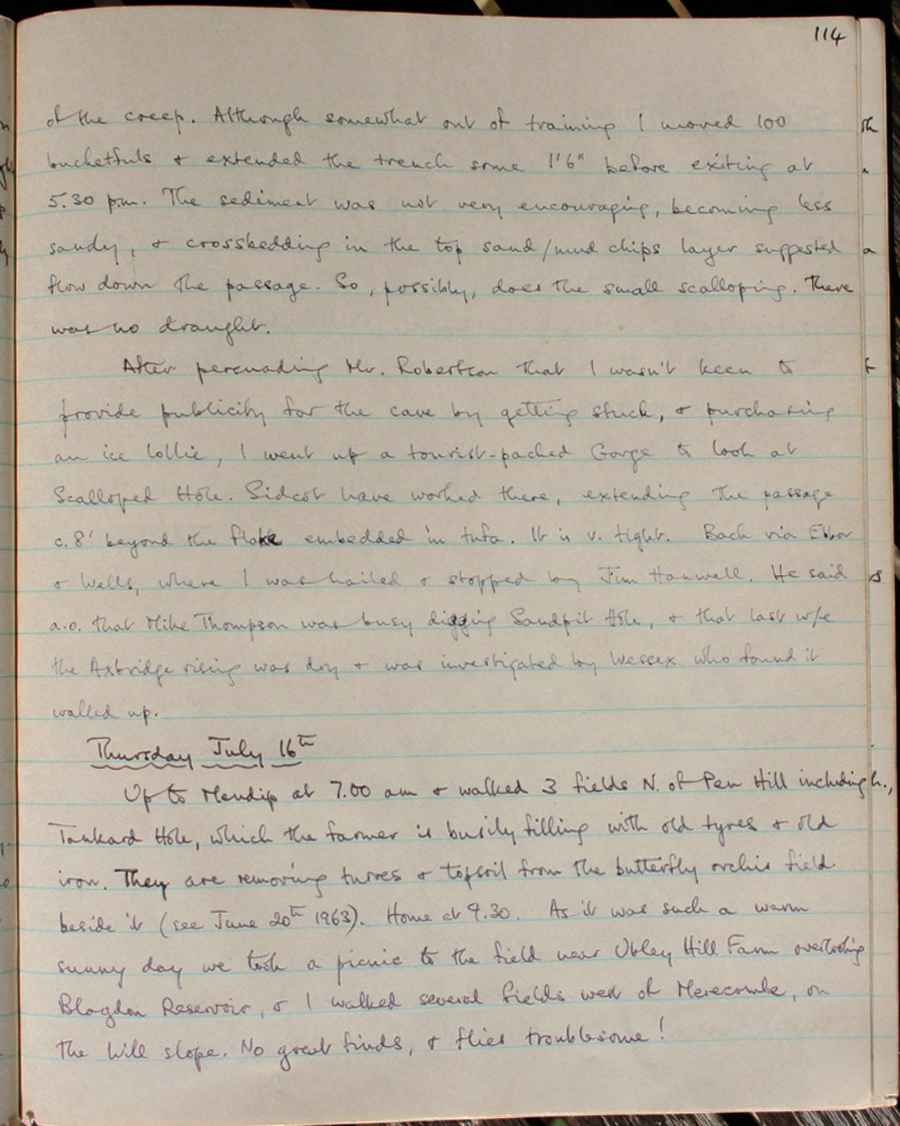 114
of the creep. Although somewhat out of training I moved 100
bucketfuls & extended the trench some 1'6" before exiting at
5.30 p.m. The sediment was not very encouraging, becoming less
sandy, & crossbedding in the top sand/mud chips layer suggested
flow down the passage. So, possibly, does the small scalloping. There
was no draught.
After persuading Mr. Robertson that I wasn't keen to
provide publicity for the cave by getting stuck, & purchasing
an ice lollie, I went up a tourist-packed Gorge to look at
Scalloped Hole. Sidcot have worked there, extending the passage
c. 8' beyond the flake embedded in tufa. It is v. tight. Back via Ebbor
& Wells, where I was hailed & stopped by Jim Hanwell. He said
a.o. that Mike Thompson was busy digging Sandpit Hole, & that last w/e
the Axbridge rising was dry & was investigated by Wessex who found it
walled up.
Thursday July 16th
Up to Mendip at 7.00 am & walked 3 fields N. of Pen Hill including
Tankard Hole, which the farmer is busily filling with old tyres & old
iron. They are removing turves & topsoil from the butterfly orchis field
beside it (see June 20th 1963). Home at 9.30. As it was such a warm
sunny day we took a picnic to the field near Ubley Hill Farm overlooking
Blagdon Reservoir, & I walked several fields west of Merecombe, on
the hill slope. No great finds, & flies troublesome!